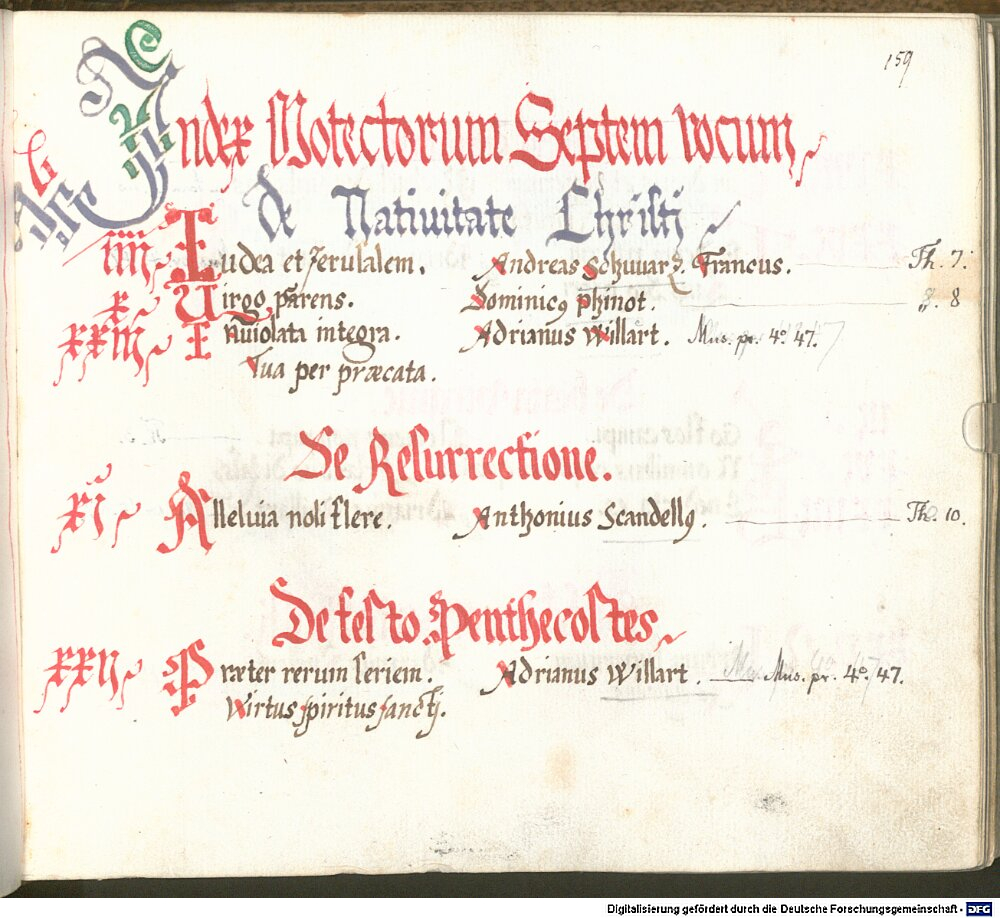 159
Index Motectorum Septem vocum
De Natiuitate Christi
IIII Iudea et Jerusalem. Andreas Schwarz. Francus. Th. 7.
X Uirgo parens. Dominicꝯ phinot. 8
XXIII Inuiolata integra. Adrianus Willart. Mus. pr. 4° 47.
Tua per præcata.
De Resurrectione.
XI Alleluia noli flere. Anthonius Scandellꝯ. Th. 10.
De festo Penthecostes
XXII Præter rerum seriem. Adrianus Willart. Mus. pr. 4° 47.
Wirtus spiritus sanctj.
Digitalisierung gefördert durch die Deutsche Forschungsgemeinschaft - DFG